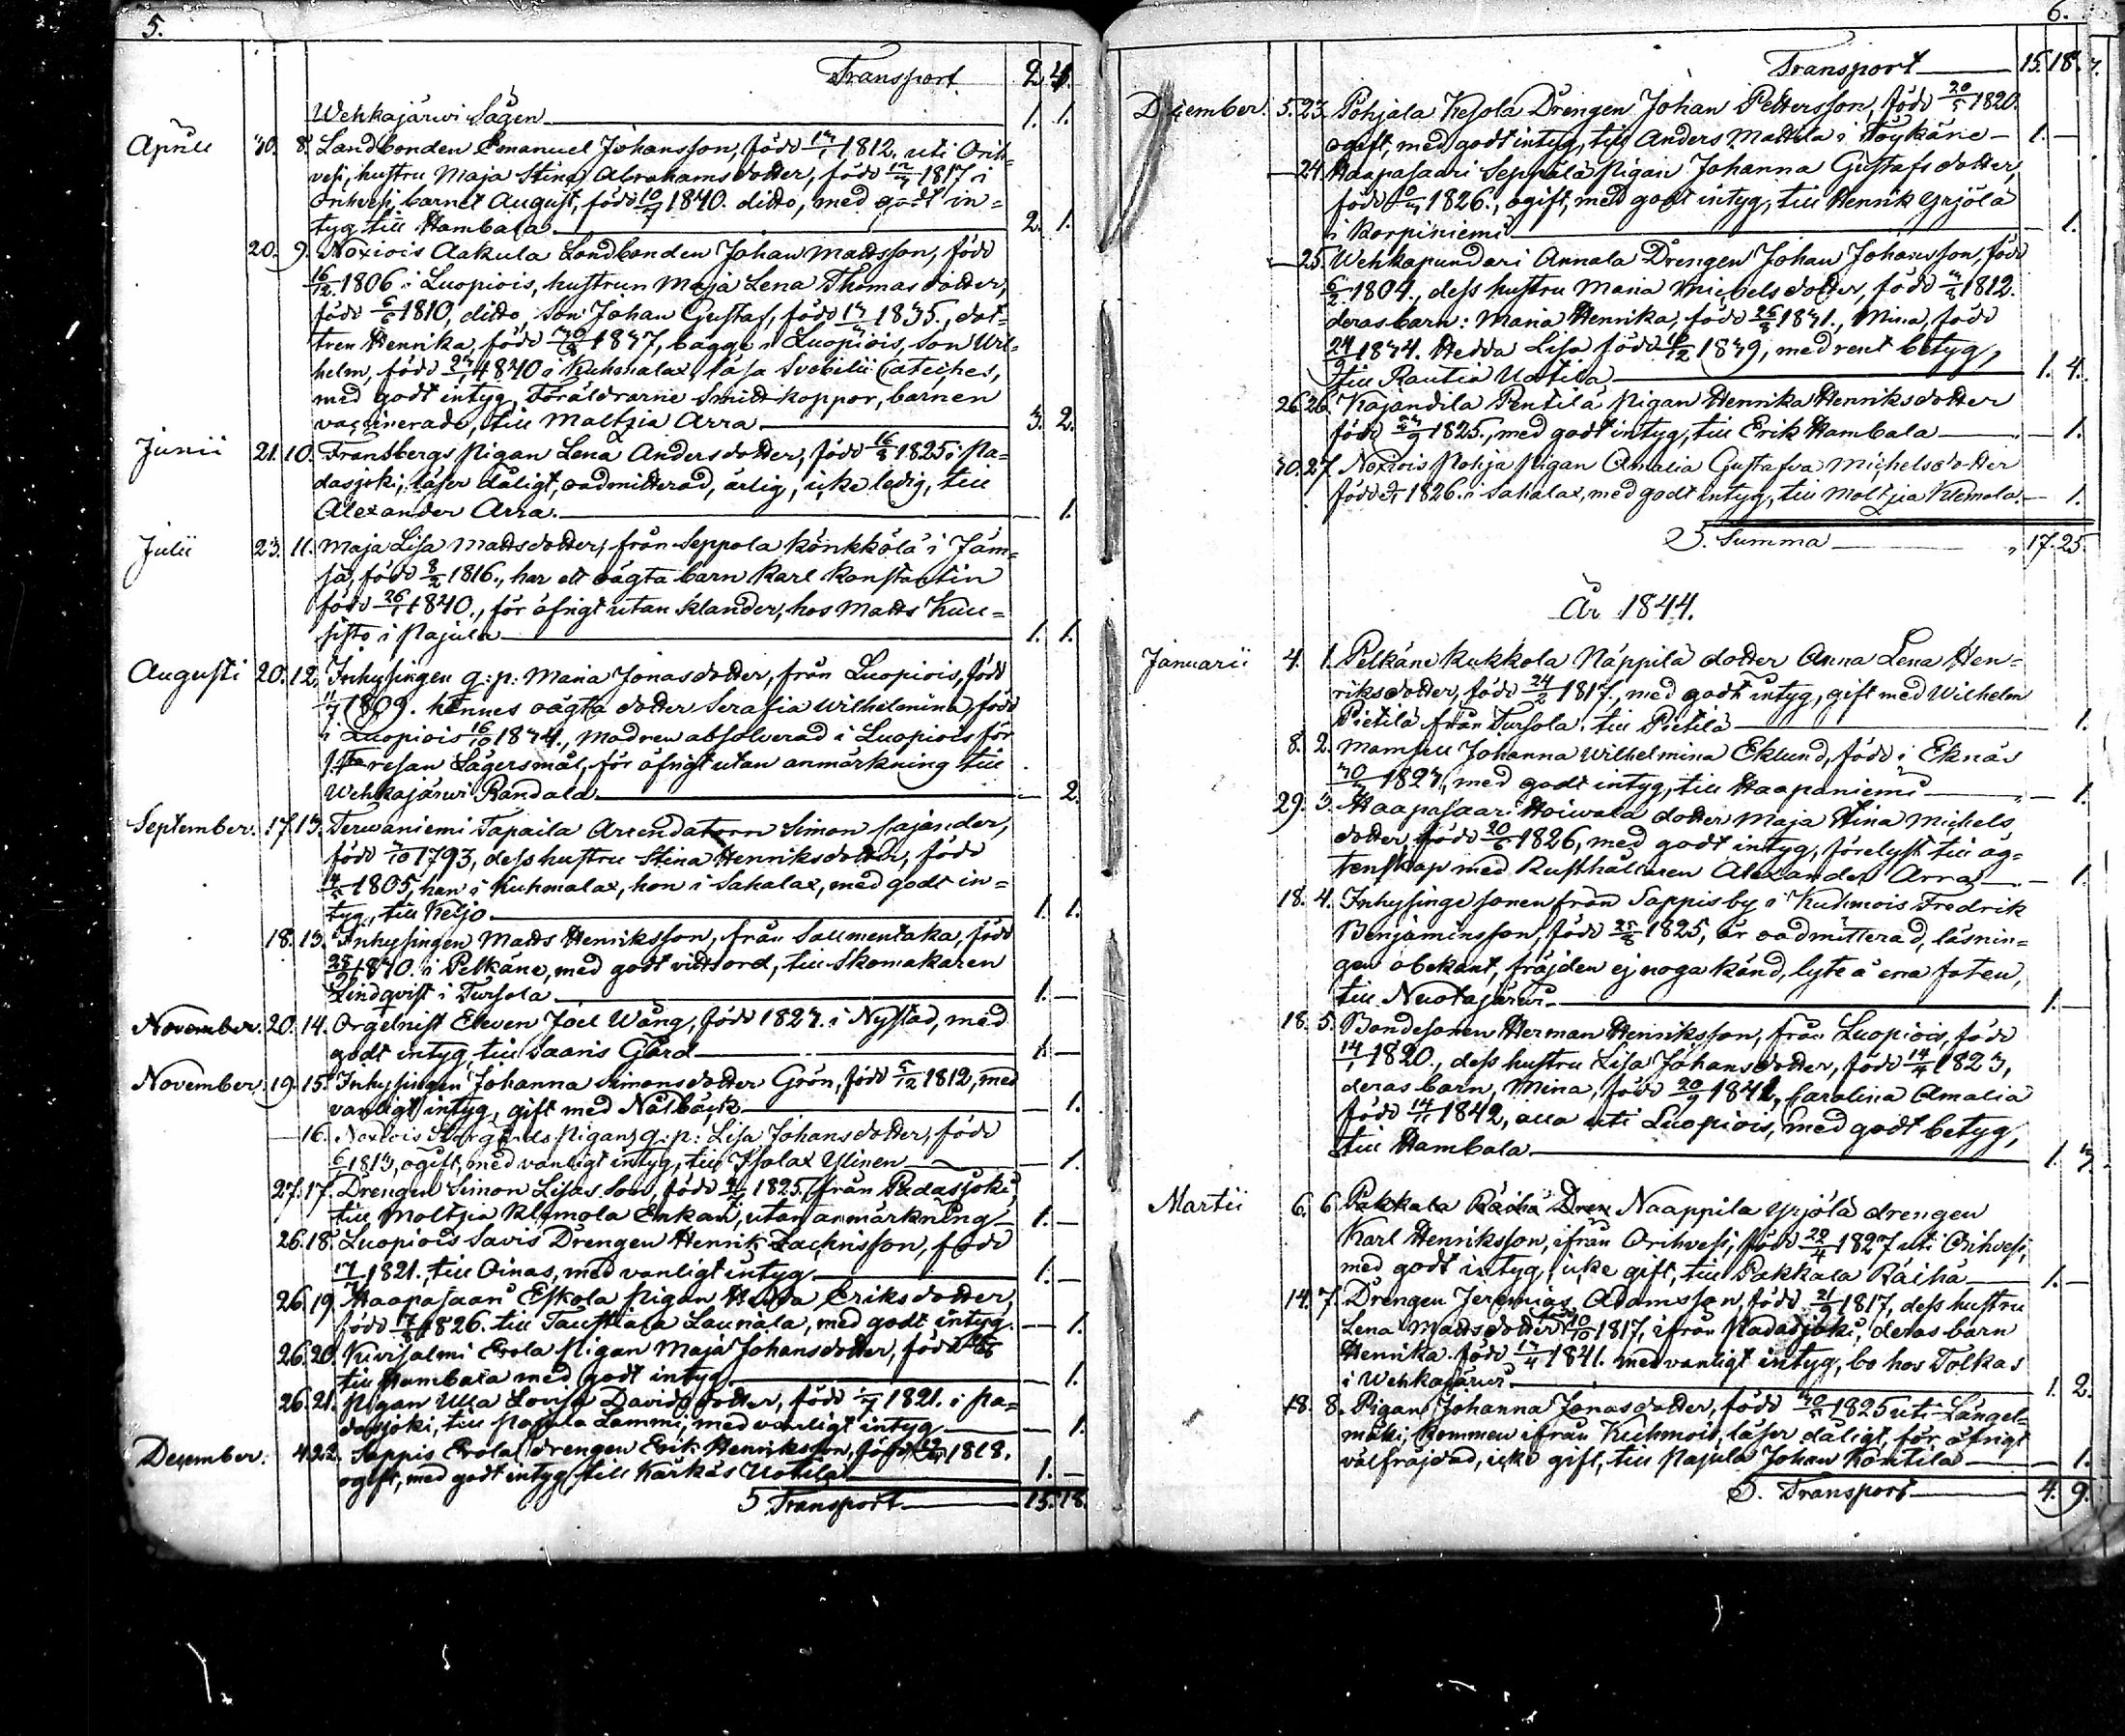 5.
Transport 2. 4.
Wehkajärwi Sågen 1. 1.
April 30. 8. Landbonden Emanuel Johansson, född 1812. uti Orih=
vesi, hustru Maja Stina Abrahamsdotter, född 1817 i
Orihvesi, barnet August, född 1840. ditto, med godt in=
tyg till Hambala. 2. 1.
20. 9. Noxiois Aakula Landbonden Johan Mattsson, född
16/12 1806 i Luopiois, hustrun Maja Lena Thomasdotter,
född 6/6 1810, ditto, Son Johan Gustaf, född 1835., dot=
tren Henrika, född 1837, bägge i Luopiois, son Wil=
helm, född 1840 i Kuhmalax, läsa Svebilii Cateches,
med godt intyg, Föräldrarne Smittkoppor, barnen
vaccinerade, till Maltzia Arra 3. 2.
Junii 21. 10. Fransbergs Pigan Lena Andersdotter, född 16/8 1825 i Pa=
dasjoki, läser dåligt, oadmitterad, ärlig, icke ledig, till
Alexander Arra. 1.
Julii 23. 11. Maja Lisa Mattsdotter, från Seppola Könkkölä i Jäm=
sä, född 8/2 1816., har ett oägta barn Karl Konstantin
född 26/1 1840., för öfrigt utan klander, hos Matts Kuu=
sisto i Pajula 1. 1.
Augusti 20. 12. Inhysingen q: p: Maria Jonasdotter, från Luopiois, född
11/7 1809. hennes oägta dotter Serafia Wilhelmina, född
i Luopiois 16/10 1834., modren absolverad i Luopiois för
1:sta resan Lägersmål, för öfrigt utan anmärkning till
Wehkajärwi Randala 2.
September. 17. 13. Terwaniemi Tapaila Arrendatorn Simon Pajander,
född 1793, dess hustru Stina Henriksdotter, född
1805, han i Kuhmalax, hon i Sahalax, med godt in=
tyg, till Keijo. 1. 1.
18. 13. Inhysingen Matts Henriksson, från Salmentaka, född
28/9 1830. i Pelkäne, med godt vittsord, till Skomakaren
Lindqvist i Tursola. 1. —
November. 20. 14. Orgelnist Eleven Joel Wång, född 1823. i Nystad, med
godt intyg, till Saaris Gård 1. —
November. 19. 15. Inhysingen Johanna Simonsdotter Grön, född 5/12 1812, med
vanligt intyg, gift med Nålbäck 1.
— 16. Noxiois Storgårds Pigan q: p: Lisa Johansdotter, född
1813, ogift, med vanligt intyg, till Isolax Ylinen 1.
27. 17. Drengen Simon Lisas son, född 1825 från Padasjoki,
till Moltzia Klemola Enkan, utan anmärkning 1. —
26. 18. Luopiois Savis Drengen Henrik Zachrisson, född
1821., till Oinas, med vanligt intyg 1. —
26. 19. Haapasaari Eskola Pigan Eriksdotter,
född 17/8 1826. till Taustiala Launala, med godt intyg. 1.
26. 20. Kivisalmi Erola Pigan Maja Johansdotter, född
till Hambala med godt intyg 1.
26. 21. Pigan Ulla Lovisa Davidsdotter, född 1821. i Pa=
dasjoki, till Pajula Lammi, med vanligt intyg 1.
December. 4. 22. Sappis Erola drengen Erik Henriksson, född 1818.
ogift, med godt intyg till Kärkäs Uotila 1. —
S Transport 15. 18.
6.
Transport 15. 18.
December. 5. 23. Pohjala Kesola Drengen Johan Pettersson, född 20/5 1820.
ogift, med godt intyg, till Anders Mattila i Töykäne 1. —
— 24. Haapasaari Seppälä Pigan Johanna Gustafsdotter,
född 1826., ogift, med godt intyg, till Henrik Yrjölä
i Korpiniemi 1.
— 25. Wehkapundari Annala Drengen Johan Johansson, född
6/2 1804., dess hustru Maria Michelsdotter, född 1812.
deras barn: Maria Henrika, född 25/8 1831., Mina, född
24/9 1834. Hedda Lisa född 1839, med rent betyg,
till Rautia Uotila 1. 4.
26. 26. Kajandila Pentilä Pigan Henrika Henriksdotter
född 1825., med godt intyg, till Erik Hambala 1.
30. 27. Noxiois Pohja Pigan Amalia Gustafva Michelsdotter
född 1826. i Sahalax, med godt intyg, till Moltzia Klemola. 1.
S. Summa 17. 25.
År 1844.
Januarii 4. 1. Pelkäne Kukkola Näppilä dotter Anna Lena Hen=
riksdotter, född 24/2 1817., med godt intyg, gift med Wilhelm
Pietilä från Tursola, till Pietilä 1.
8. 2. Mamsell Johanna Wilhelmina Eklund, född i Eknäs
1823, med godt intyg, till Haapaniemi 1.
29. 3. Haapasaari Hoiwala dotter Maja Stina Michels
dotter, född 20/6 1826, med godt intyg, förelyst till äg=
tenskap med Rusthållaren Alexander Arra 1.
18. 4. Inhysinge sonen från Sappisby i Kuhmois Fredrik
Benjaminsson, född 1825, är oadmitterad, läsnin=
gen obekant, fräjden ej noga känd, lyte å ena foten,
till Nuotajärwi 1. —
18. 5. Bondesonen Herman Henriksson, från Luopiois, född
14/1 1820., dess hustru Lisa Johansdotter, född 14/4 1823,
deras barn, Mina, född 20/9 1841, Carolina Amalia
född 14/11 1842, alla uti Luopiois, med godt betyg,
till Hambala 1. 3.
Martii 6. 6. Pakkala Räihä Dren Naappila Yrjölä drengen
Karl Henriksson, ifrån Orihvesi, född 22/4 1827 uti Orihvesi,
med godt intyg, icke gift, till Pakkala Räihä 1. —
14. 7. Drengen Jeremias Adamsson, född 21/9 1817, dess hustru
Lena Mattsdotter 20/10 1817, ifrån Padasjoki, deras barn
Henrika född 1841. med vanligt intyg, bo hos Tolkas
i Wehkajärwi. 1. 2.
18. 8. Pigan Johanna Jonasdotter, född 1825 uti Längel=
mäki, kommen ifrån Kuhmois, läser dåligt, för öfrigt
välfräjdad, icke gift, till Pajula Johan Kontila 1.
S. Transport 4. 9.